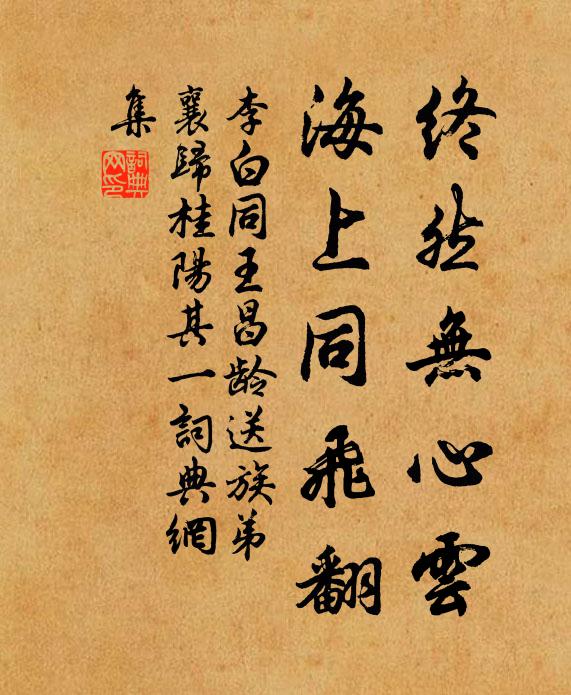 終然無心雲
海上同飛翻
李白同王昌齡送族弟
襄歸桂陽其一詞典網
集
詞典網印